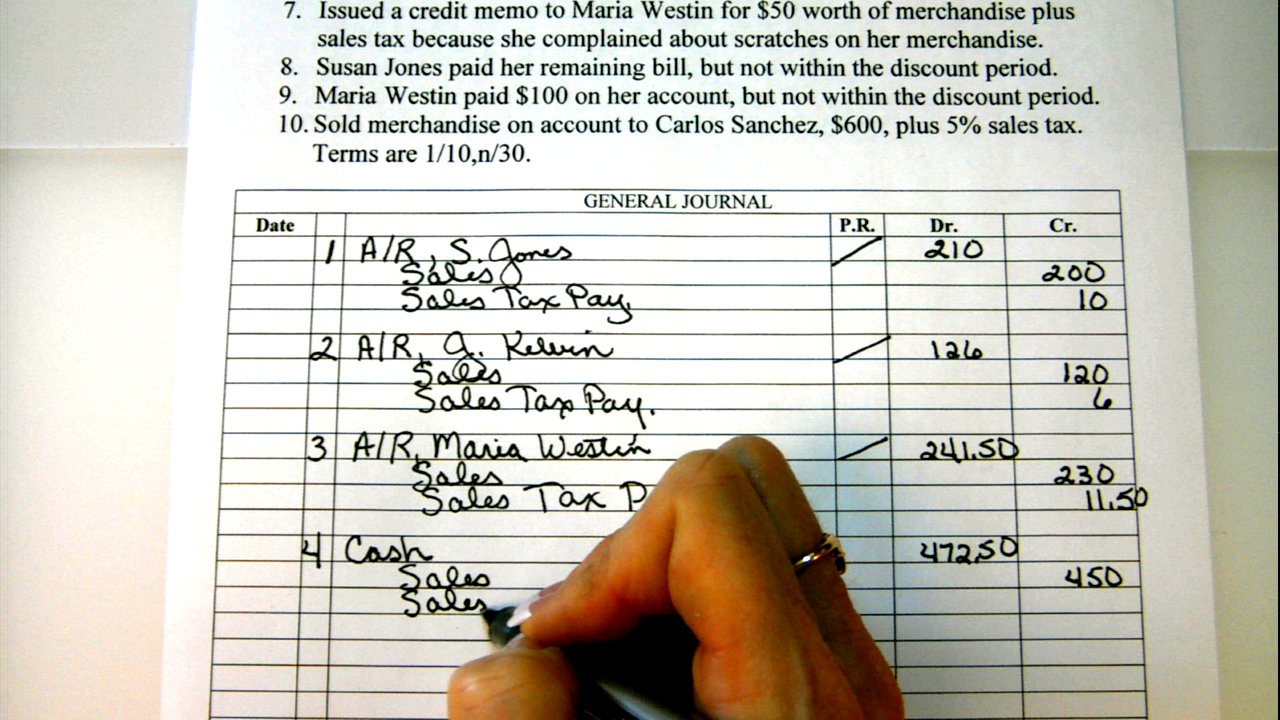 7. Issued a credit memo to Maria Westin for $50 worth of merchandise plus
sales tax because she complained about scratches on her merchandise.
8. Susan Jones paid her remaining bill, but not within the discount period.
9. Maria Westin paid $100 on her account, but not within the discount period.
10. Sold merchandise on account to Carlos Sanchez, $600, plus 5% sales tax.
Terms are 1/10,n/30.
GENERAL JOURNAL
Date P.R. Dr. Cr.
1 A/R, S. Jones 210
Sales 200
Sales Tax Pay. 10
2 A/R, J. Kelvin 126
Sales 120
Sales Tax Pay. 6
3 A/R, Maria Westin 241.50
Sales 230
Sales Tax P 11.50
4 Cash 472.50
Sales 450
Sales